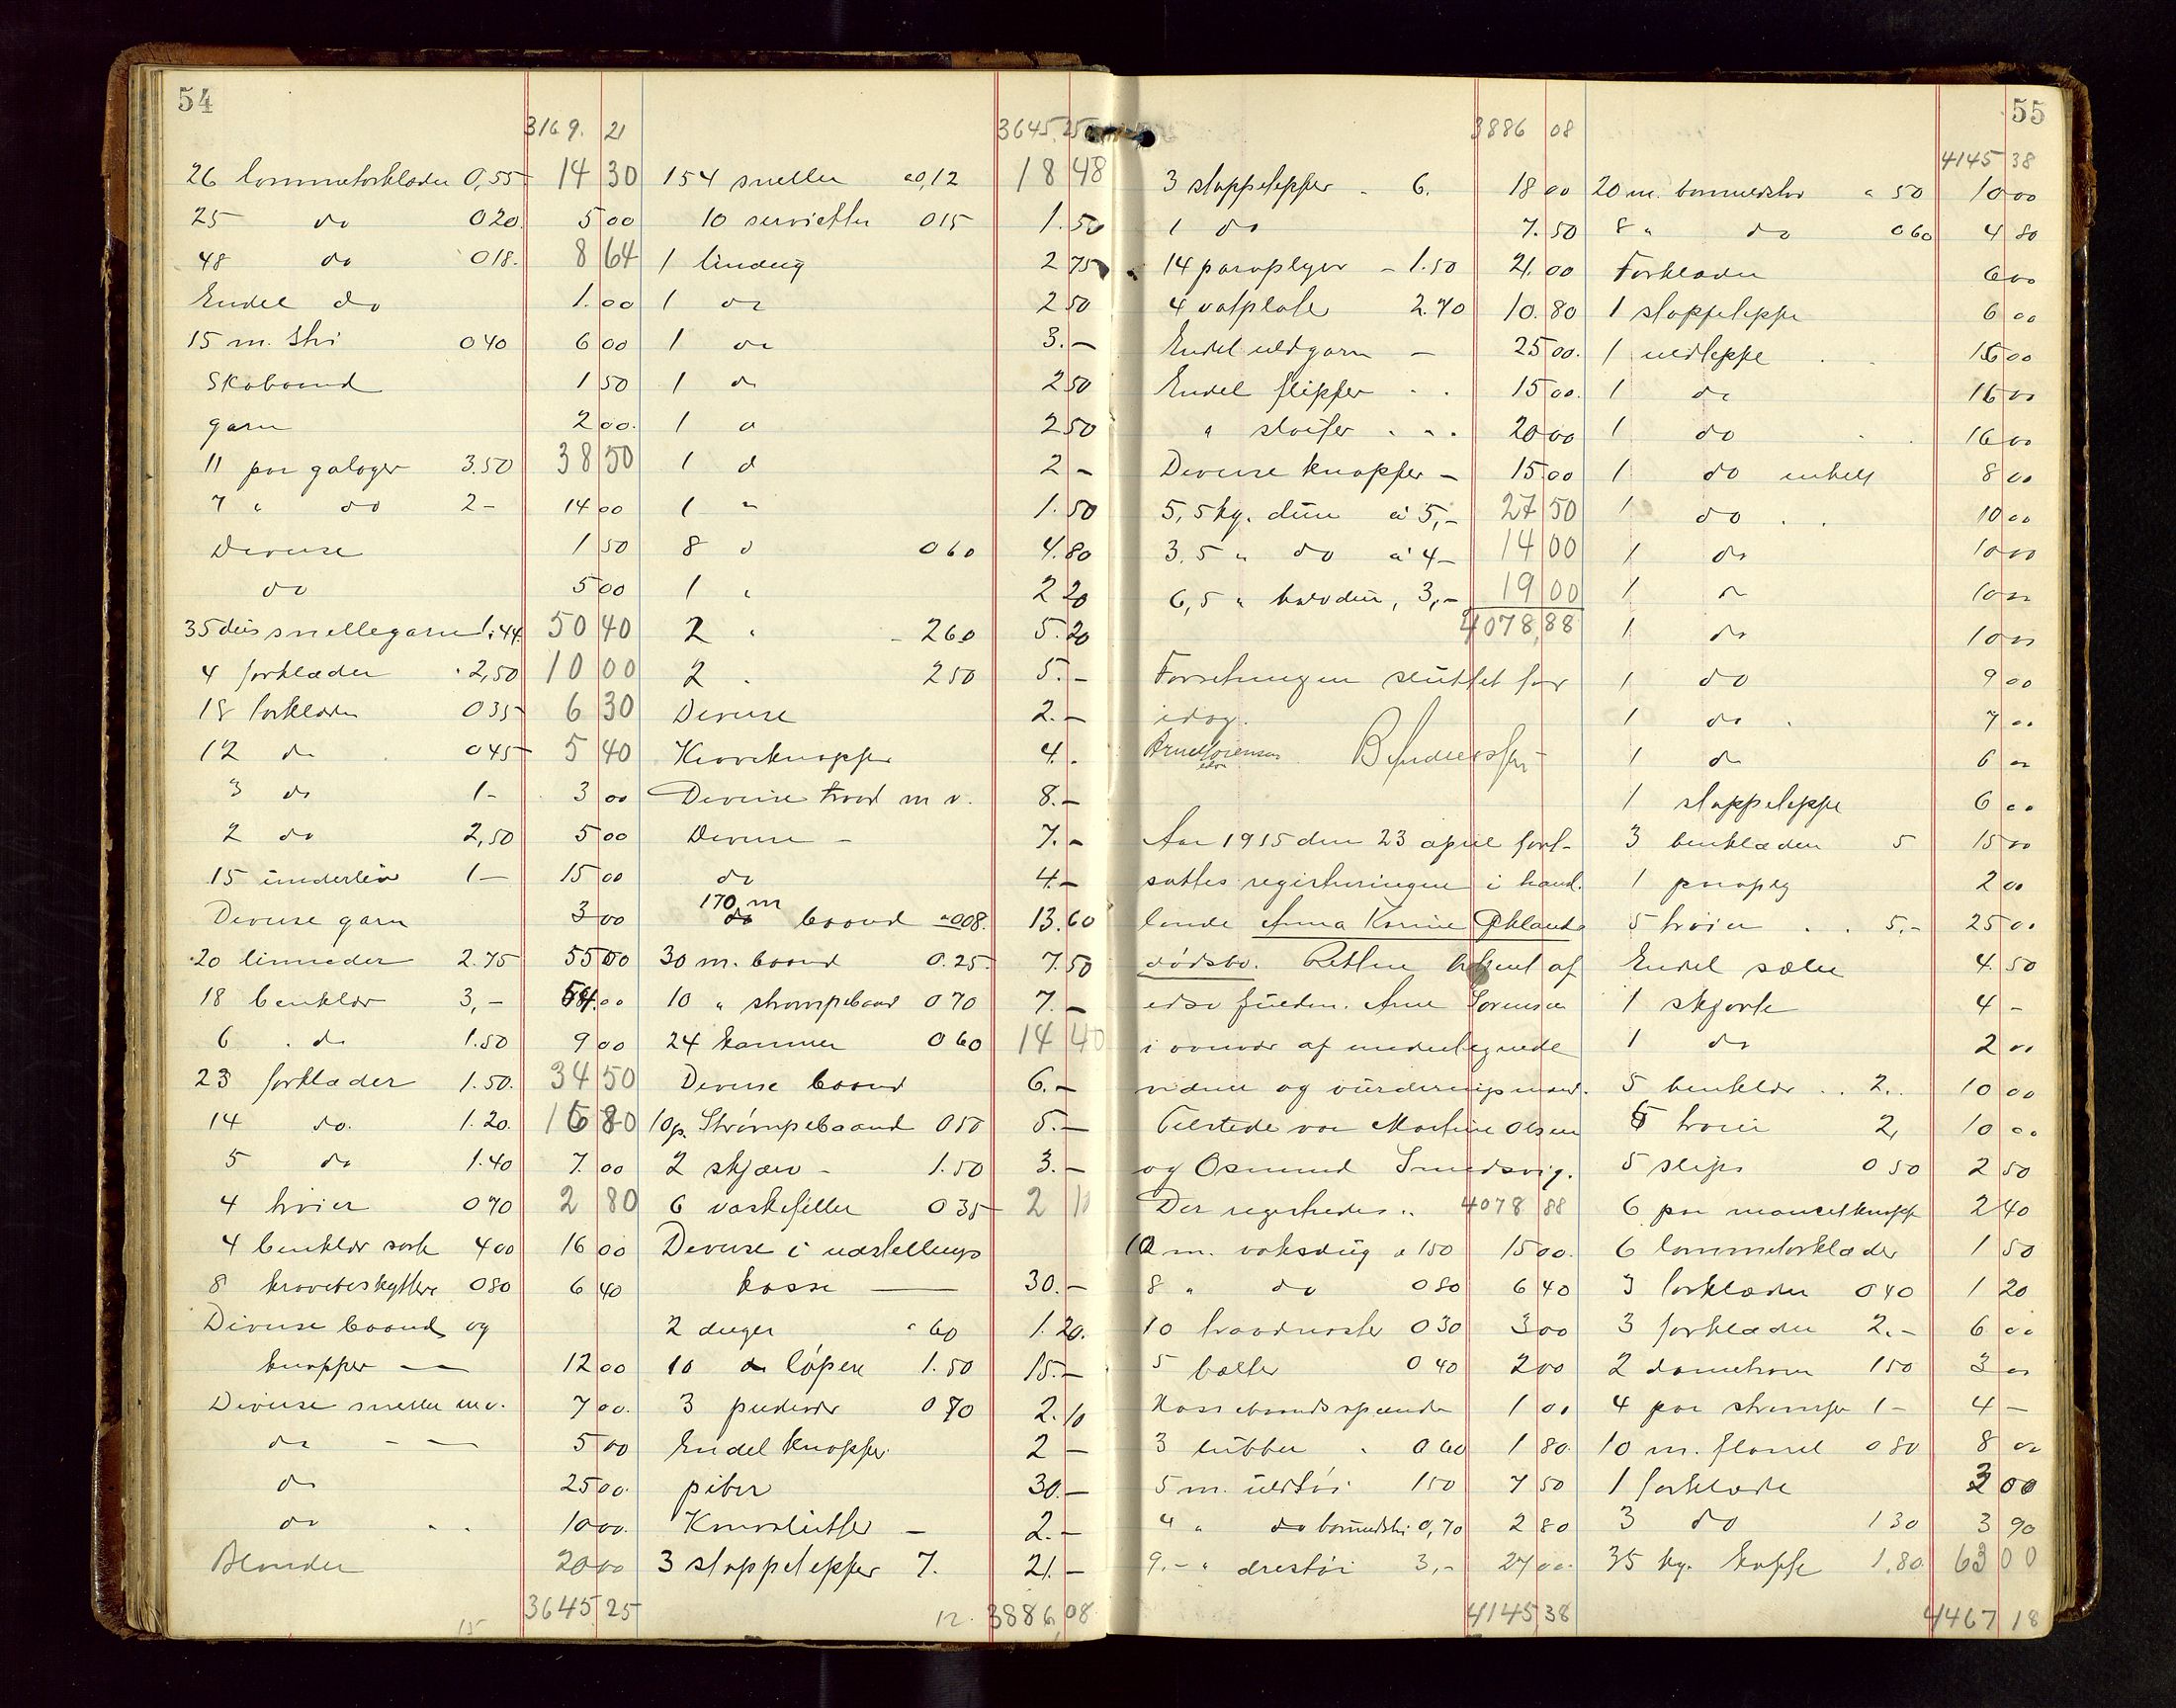 54
3169. 21
26 lommetorklæder 0,55 14 30
25 do 020. 5 00
48 do 018. 8 64
Endel do 1. 00
15 m. stri 040 6 00
Skobaand 1 50
garn 2 00.
11 par galoger 3.50 38 50
7 " do 2- 14 00
Diverse 1 50
do 5 00
35 dus snellegarn 1.44 50 40
4 forklæder 2,50 10 00
18 forklæder 035 6 30
12 do 045 5 40
3 do 1- 3 00
2 do 2,50 5 00
15 underliv 1- 15 00
Diverse garn 3 00
20 linneder 2.75 55 00
18 benklær 3,- 54.00
6 do 1.50 9 00
23 forklæder 1.50. 34 50
14 do. 1.20. 16 80
5 do 1.40 7. 00
4 trøier 070 2 80
4 benklær sorte 400 16 00
8 kravebeskyttere 080 6 40
Diverse baand og
knapper — 12 00
Diverse sneller m.v. 7 00.
do - — 5 00
do 25 00.
do 10 00.
Blonder 20 00
3645 25
15
3645.25
154 sneller a 0,12 18 48
10 servietter 015 1. 50
1 lindug 2 75
1 do 2 50
1 do 3.—
1 do 2 50
1 d 2 50
1 d 2 -
1 " 1. 50
8 d 060 4. 80
1 " 2 20
2 " 260 5. 20
2 " 250 5. -
Diverse 2. -
Kraveknapper 4. .
Diverse traad m v. 8. -
Diverse - 7. -
do 4. -
170 m
do baand a 008. 13. 60
30 m. baand 0.25. 7. 50
10 " strømpebaand 070 7. -
24 kammer 060 14 40
Diverse baand 6. -
10 p. Strømpebaand 050 5. -
2 skjærv - 1.50 3. -
6 vaskefiller 035 2 10
Diverse i udstillings
kasse — 30. -
2 duger " 60 1. 20.
10 do løpere 1.50 15. -
3 pudevar 070 2. 10
Endel knapper. 2 -
piber 30. -
- 2. -
3 stoppetepper 7. 21. -
12. 3886,08
55
3886 08
3 stoppetepper - 6. 18 00
1 do 7. 50
14 paraplyer - 1.50 21. 00
4 vatplater 2.70 10. 80
Endel uldgarn - 25 00.
Endel flipper . . 15 00.
" sløifer . . . 20 00
Diverse knapper - 15 00
5,5 kg. dun a 5,- 27 50
3.5 " do a 4- 14 00
6,5 " halvdun, 3,- 19 00
4078,88
Forretningen sluttet for
idag.
Arne Sørensen
edsv.
Aar 1915 den 23 april fort-
sattes registreringen i hand.
lende Anna Karine Øklands
dødsbo. Retten betjent af
edsv fuldm. Arne Sørensen
i nærvær af undertegnede
vidner og vurderingsmænd.
Tilstede var Martine Olsen
og Osmund Smedsvig.
Der registredes .. 4078 88
10 m. voksdug a 150 15 00.
8 " do 080 6 40
10 traadnøster 030 3 00
5 belter 040 2 00
1 00
3 lubber . 060 1 80.
5 m. uldtøi 150 7 50
4 " do bomuldstøi 0,70 2 80
9.- " drestøi 3,- 27 00.
4145,38
4145 38
20 m. bomuldstøi " 50 10 00
8 " do 060 4 80
Forklæder 6 00
1 stoppeteppe 6 00
1 uldteppe . . 15 00
1 do 16 00
1 do . . 16 00
1 do enkelt 8 00
1 do . . 10 00
1 do 10 00
1 do 10 00
1 do 10 00
1 do 9 00
1 do . 7 00
1 do 6 00
1 stoppeteppe 6 00
3 benklæder 5 15 00
1 paraply 2 00
5 trøier . . 5,- 25 00
Endel seler 4. 50
1 skjorte 4 -
1 do 2 00
5 benklær . . 2.. 10 00
5 trøier 2, 10 00
5 slips 0 50 2 50
6 par mancetknapp 2 40
6 lommetorklæder 1 50
3 forklæder 040 1 20
3 forklæder 2.- 6 00
2 dametrøier 150 3 00
4 par strømper 1- 4 -
10 m. flanel 080 8 00
1 forklæde 3 00
3 do 130 3 90
35 kg. kaffe 1.80 63 00
4467 18